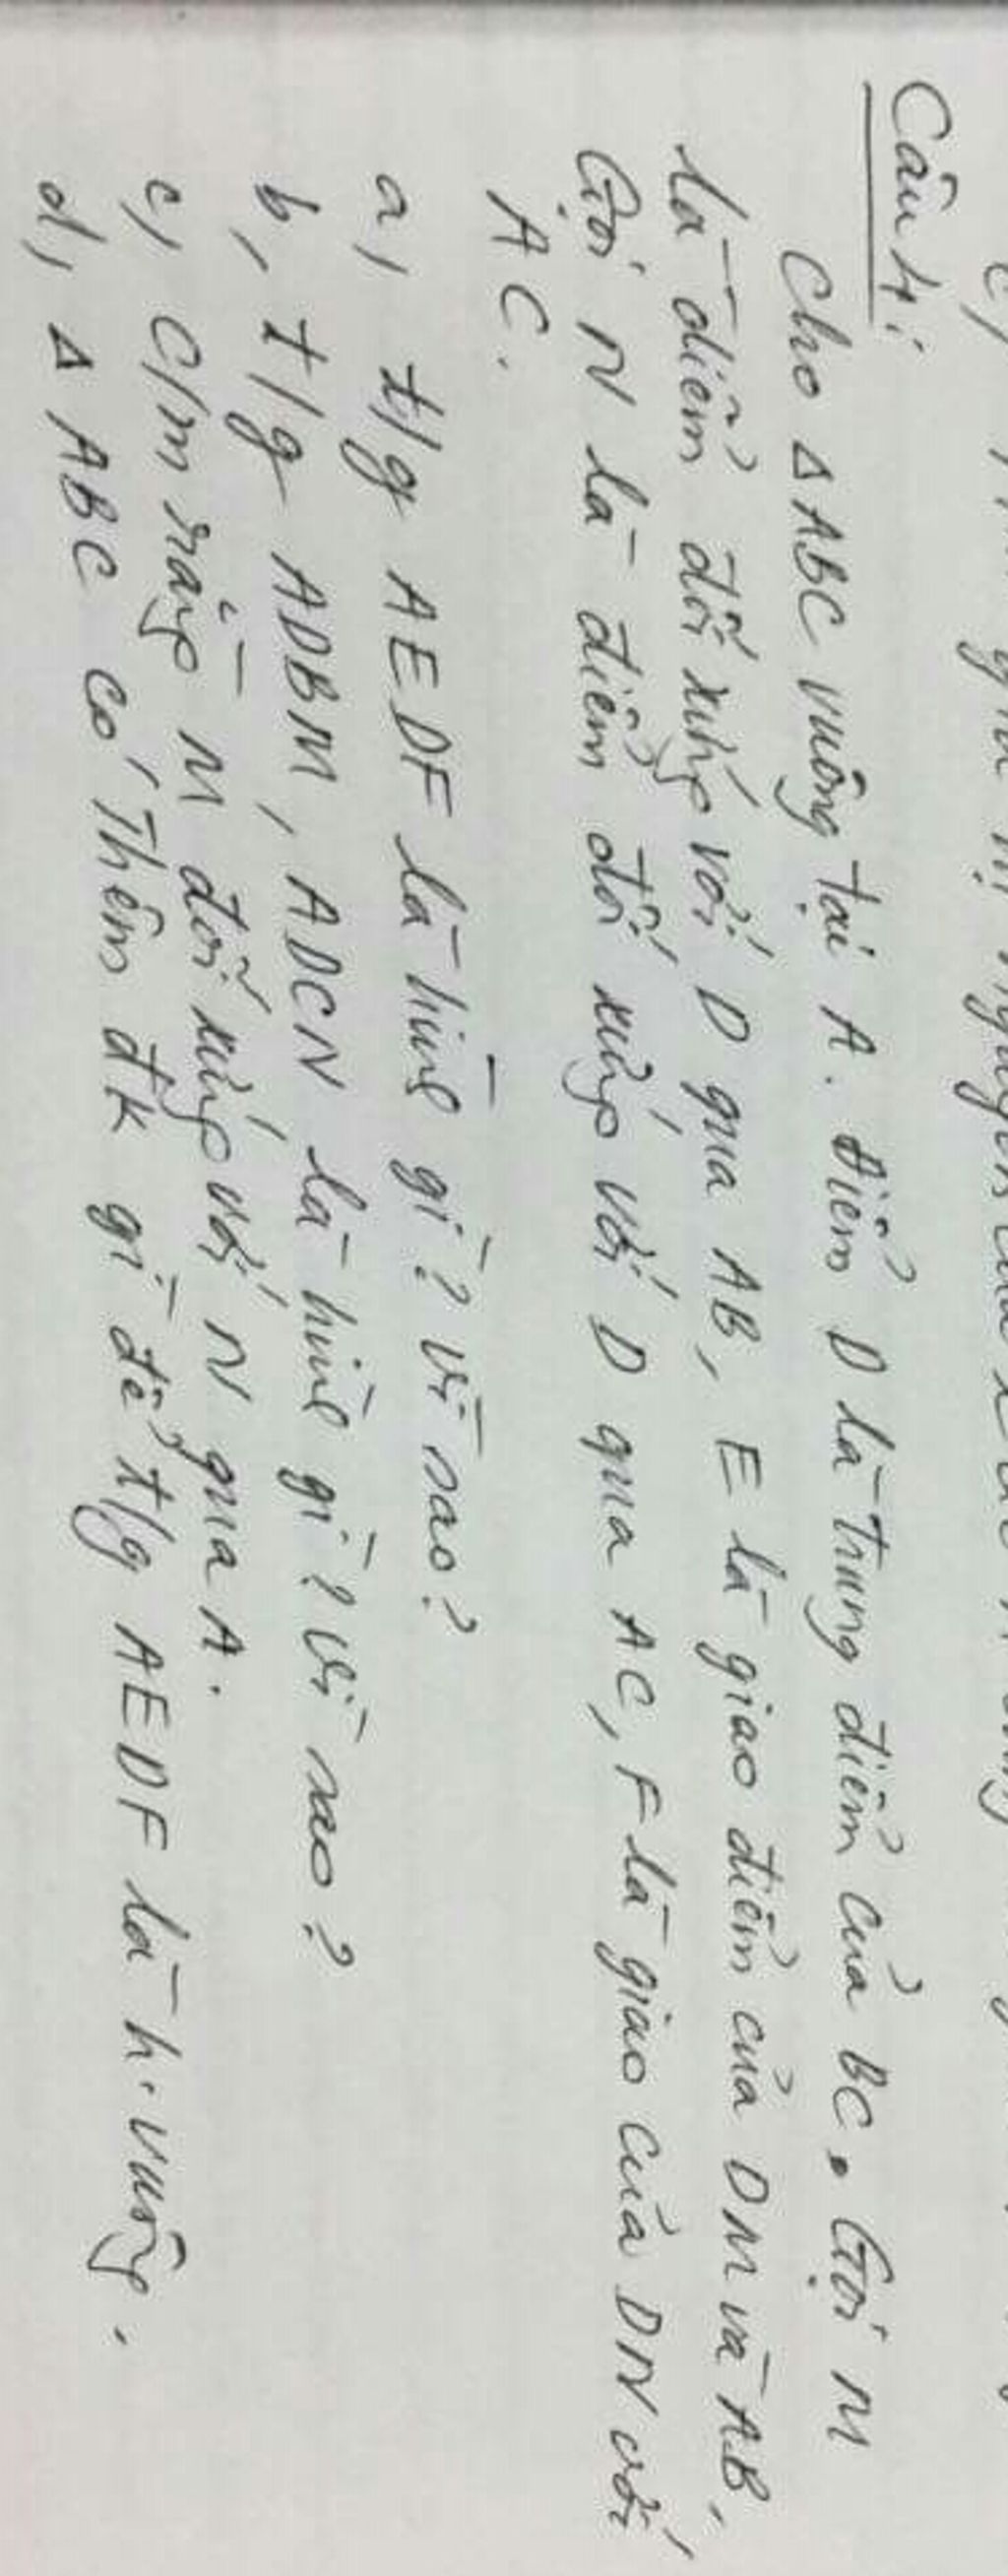 Câu 4:
Cho Δ ABC vuông tại A. Điểm D là trung điểm của BC. Gọi M
là điểm đối xứng với D qua AB, E là giao điểm của DM và AB,
Gọi N là điểm đối xứng với D qua AC, F là giao của DN với
AC.
a, t/g AEDF là hình gì? Vì sao?
b, t/g ADBM, ADCN là hình gì? Vì sao?
c, C/m rằng M đối xứng với N qua A.
d, Δ ABC có thêm đk gì để t/g AEDF là h.vuông.